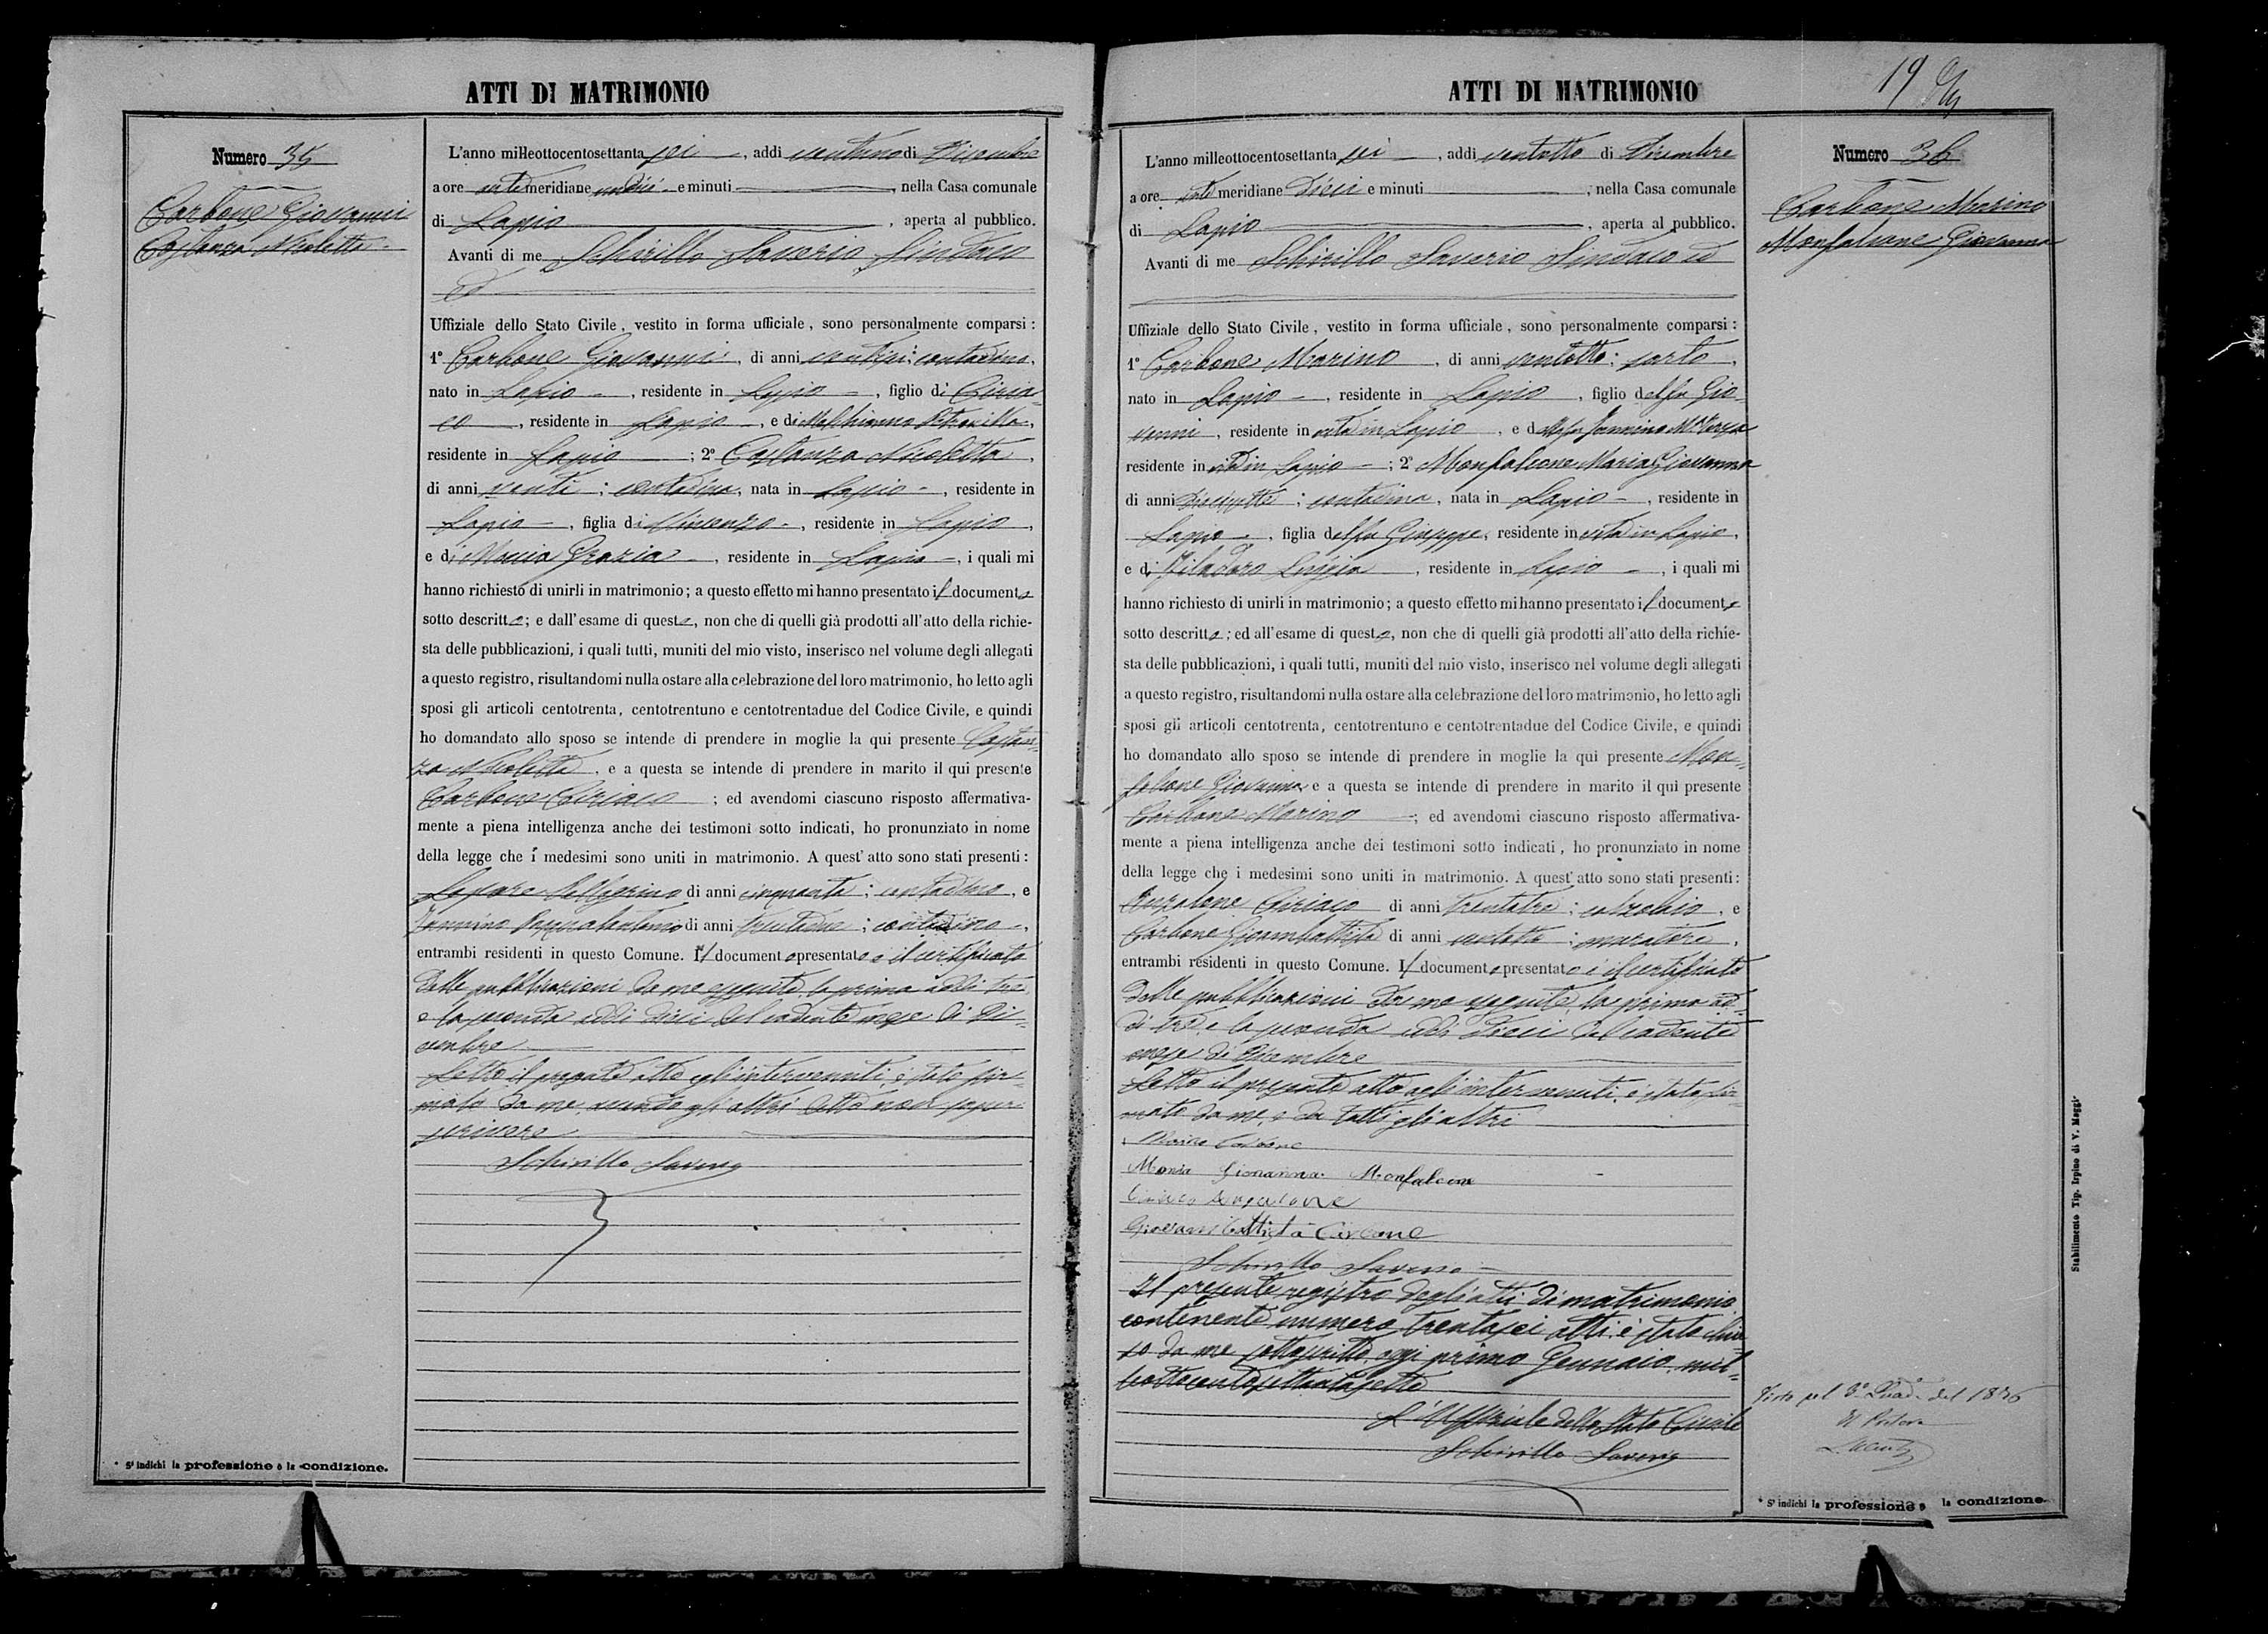 ATTI DI MATRIMONIO
Numero 35
Carbone Giovanni
Costanza Nicoletta
L'anno milleottocentosettanta sei, addì ventuno di Dicembre
a ore ante meridiane undici e minuti, nella Casa comunale
di Lapio, aperta al pubblico.
Avanti di me Schirillo Saverio Sindaco
ed
Uffiziale dello Stato Civile, vestito in forma ufficiale, sono personalmente comparsi:
1° Carbone Giovanni, di anni ventisei; contadino,
nato in Lapio, residente in Lapio, figlio di Ciria-
co, residente in Lapio, e di Melchionno Petronilla,
residente in Lapio; 2° Costanza Nicoletta,
di anni venti; contadina, nata in Lapio, residente in
Lapio, figlia di Vincenzo, residente in Lapio,
e di Grazia, residente in Lapio, i quali mi
hanno richiesto di unirli in matrimonio; a questo effetto mi hanno presentato il documento
sotto descritto; e dall'esame di questo, non che di quelli già prodotti all'atto della richie-
sta delle pubblicazioni, i quali tutti, muniti del mio visto, inserisco nel volume degli allegati
a questo registro, risultandomi nulla ostare alla celebrazione del loro matrimonio, ho letto agli
sposi gli articoli centotrenta, centotrentuno e centotrentadue del Codice Civile, e quindi
ho domandato allo sposo se intende di prendere in moglie la qui presente Costan-
za Nicoletta, e a questa se intende di prendere in marito il qui presente
Carbone Ciriaco; ed avendomi ciascuno risposto affermativa-
mente a piena intelligenza anche dei testimoni sotto indicati, ho pronunziato in nome
della legge che i medesimi sono uniti in matrimonio. A quest'atto sono stati presenti:
Pellegrino di anni cinquanta; contadino, e
Jannino di anni trentadue; contadino,
entrambi residenti in questo Comune. Il documento presentato è il certificato
delle pubblicazioni da me eseguite, la prima addì tre,
e la seconda addì dieci del cadente mese di Di-
cembre
Letto il presente atto agli intervenuti, è stato fir-
mato da me, avendo gli altri detto non saper
scrivere
Schirillo Saverio
* Si indichi la professione o la condizione.
ATTI DI MATRIMONIO
19
Numero 36
Carbone Marino
Monfalcone Giovanna
L'anno milleottocentosettanta sei, addì ventotto di Dicembre
a ore ante meridiane dieci e minuti, nella Casa comunale
di Lapio, aperta al pubblico.
Avanti di me Schirillo Saverio Sindaco ed
Uffiziale dello Stato Civile, vestito in forma ufficiale, sono personalmente comparsi:
1° Carbone Marino, di anni ventotto; sarto,
nato in Lapio, residente in Lapio, figlio del fu Gio-
vanni, residente in vita in Lapio, e della fu Jannino Ma Teresa
residente in vita in Lapio; 2° Monfalcone Maria Giovanna
di anni diciassette; contadina, nata in Lapio, residente in
Lapio, figlia del fu Giuseppe, residente in vita in Lapio,
e di Filadoro Luigia, residente in Lapio, i quali mi
hanno richiesto di unirli in matrimonio; a questo effetto mi hanno presentato il documento
sotto descritto; ed all'esame di questo, non che di quelli già prodotti all'atto della richie-
sta delle pubblicazioni, i quali tutti, muniti del mio visto, inserisco nel volume degli allegati
a questo registro, risultandomi nulla ostare alla celebrazione del loro matrimonio, ho letto agli
sposi gli articoli centotrenta, centotrentuno e centotrentadue del Codice Civile, e quindi
ho domandato allo sposo se intende di prendere in moglie la qui presente Mon-
falcone Giovanna e a questa se intende di prendere in marito il qui presente
Carbone Marino; ed avendomi ciascuno risposto affermativa-
mente a piena intelligenza anche dei testimoni sotto indicati, ho pronunziato in nome
della legge che i medesimi sono uniti in matrimonio. A quest'atto sono stati presenti:
Ciriaco di anni trentatre; calzolaio, e
Carbone Giambattista di anni ventotto; muratore,
entrambi residenti in questo Comune. Il documento presentato è il certificato
delle pubblicazioni da me eseguite, la prima ad-
dì tre, e la seconda addì dieci del cadente
mese di Dicembre
Letto il presente atto agli intervenuti, è stato fir-
mato da me, e da tutti gli altri
Marino Carbone
Maria Giovanna Monfalcone
Ciriaco
Giovanni Battista Carbone
Schirillo Saverio
Il presente registro degli atti di matrimonio
contenente numero trentasei atti è stato chiu-
so da me sottoscritto, oggi primo Gennaio mil-
leottocentosettantasette
L'Uffiziale dello Stato Civile
Schirillo Saverio
Visto pel 3° Quad. del 1876
Il Pretore
* Si indichi la professione o la condizione.
Stabilimento Tip. Irpino di V. Maggi